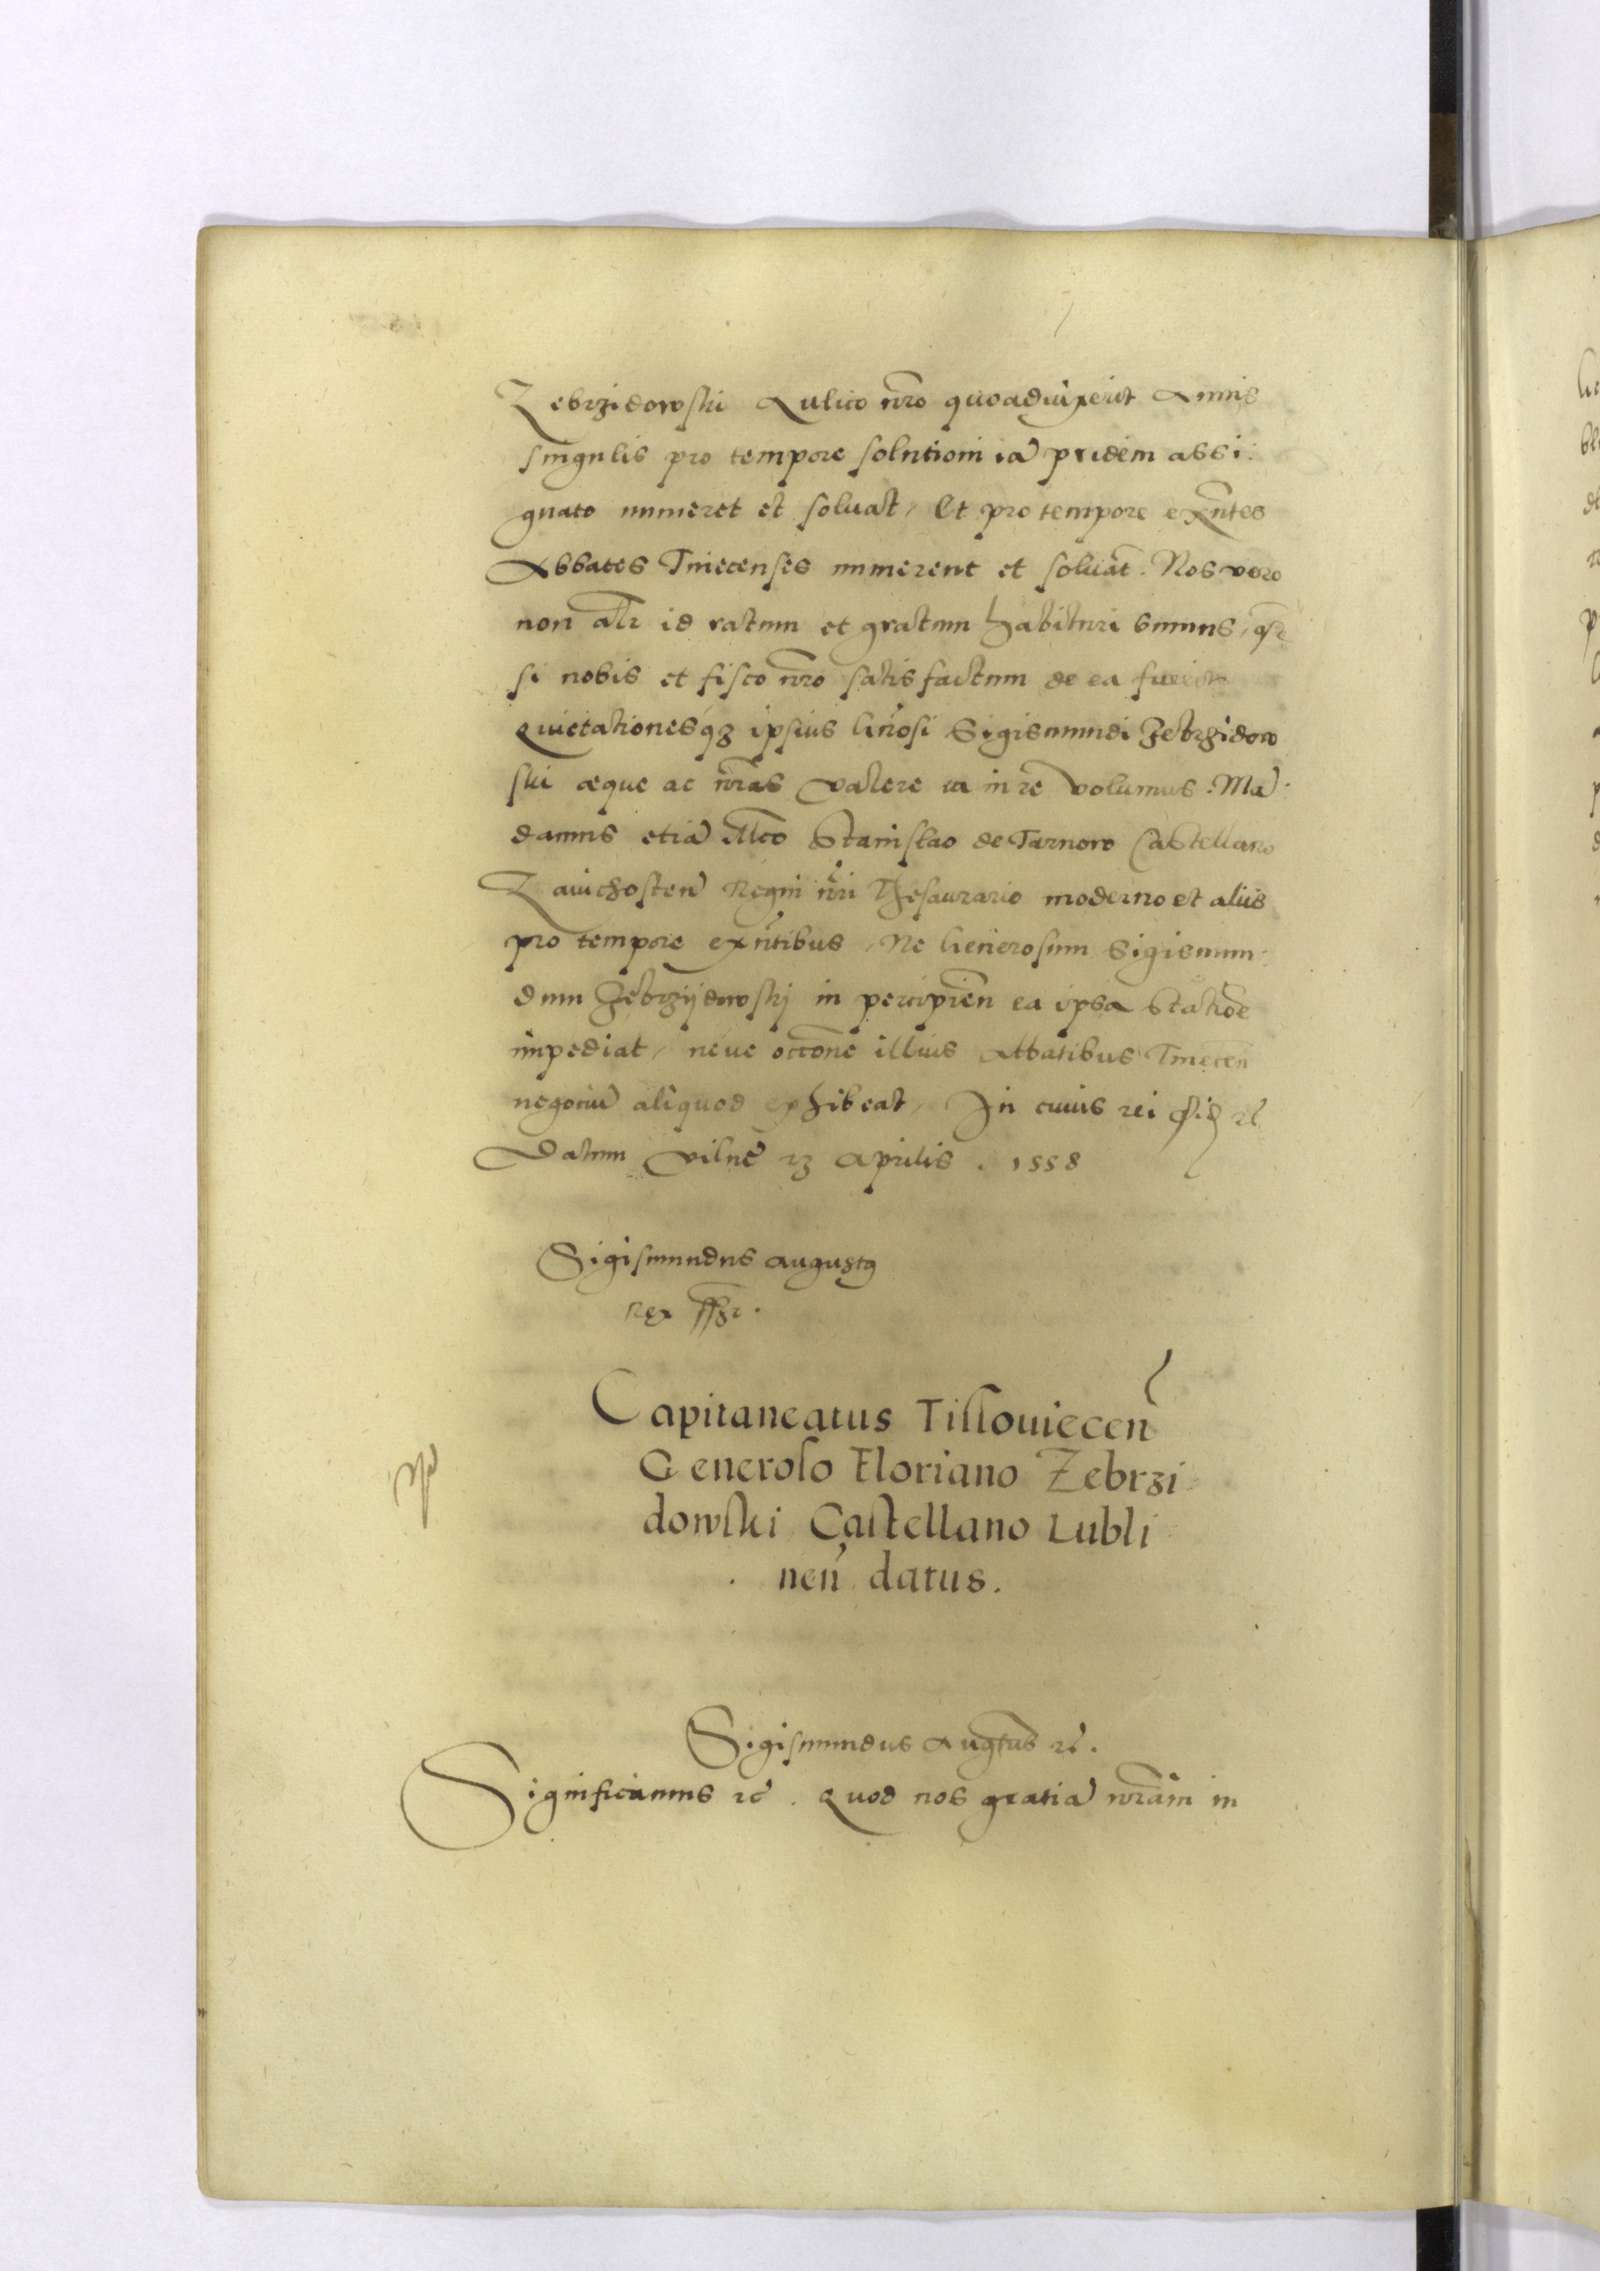 Zebrzidowski Aulico nr̃o quoaduixerit Annis
singulis pro tempore solutioni iã pridem assi:
gnato numeret et soluat, Et pro tempore exñtes
Abbates Tinecenses numerent et soluãt. Nos vero
non alr̃ id ratum et gratum habituri sumus, q̃
si nobis et fisco nr̃o satisfactum de ea fuerit
Quietationesq₃ ipsius Gñosi Sigismundi Zebrzidow
ski æque ac nr̃as valere ea in re volumus. Mã:
damus etiã Mco Stanislao de Tarnow Castellano
Zauichosteñ Regni nr̃i Thesaurario moderno et aliis
pro tempore exñtibus, Ne Generosum Sigismun:
dum Zebrzijdowskj in percipieñ ea ipsa statiõe
impediat, neue occõne illius Abbatibus Tineceñ
negociũ aliquod exhibeat, In cuius rei fid₃ rc̃
Datum Vilnę 23 Aprilis . 1558
Sigismundus Augustꝯ
Rex ssr̃.
Capitaneatus Tissouieceñ
Generoso Floriano Zebrzi
dowski Castellano Lubli
neñ datus.
Sigismundus Augtũs rc̃.
Significamus rc̃. Quod nos gratiã nr̃am in